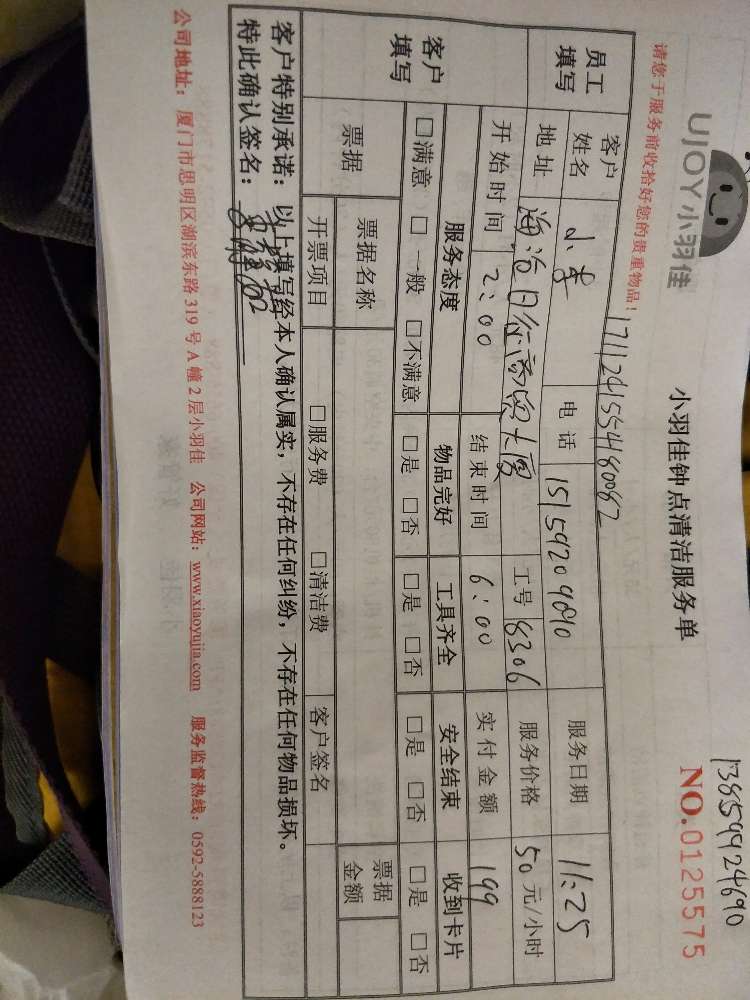 13859924690
UJOY小羽佳
小羽佳钟点清洁服务单
NO.0125575
请您于服务前收拾好您的贵重物品！
1711241554180062
员工填写
客户姓名 小李 电话 15159209090 服务日期 11:25
地址 海沧日行商贸大厦 工号 8306 服务价格 50元/小时
开始时间 2:00 结束时间 6:00 实付金额 199
客户填写
服务态度 物品完好 工具齐全 安全结束 收到卡片
□满意 □一般 □不满意 □是 □否 □是 □否 □是 □否 □是 □否
票据 票据名称 票据金额
开票项目 □服务费 □清洁费 客户签名
客户特别承诺：以上填写经本人确认属实，不存在任何纠纷，不存在任何物品损坏。
特此确认签名：
公司地址：厦门市思明区湖滨东路319号A幢2层小羽佳 公司网站：www.xiaoyujia.com 服务监督热线：0592-5888123